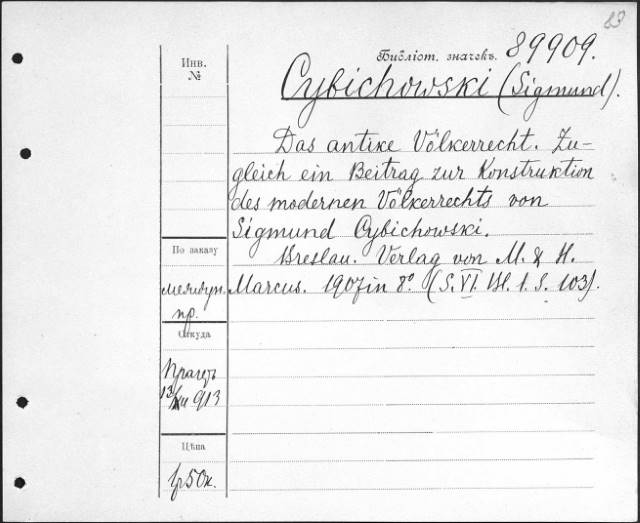 83
Библіот. значекъ. 89909.
Инв.
№
Cybichowski (Sigmund).
Das antike Völkerrecht. Zu-
gleich ein Beitrag zur Konstruktion
des modernen Völkerrechts von
Sigmund Cybichowski.
Breslau. Verlag von M. & H.
Marcus. 1907 in 8° (S. VI. 1. S. 103).
По заказу
междун.
пр.
Откуда
13/XII 913
Цѣна
1р50к.